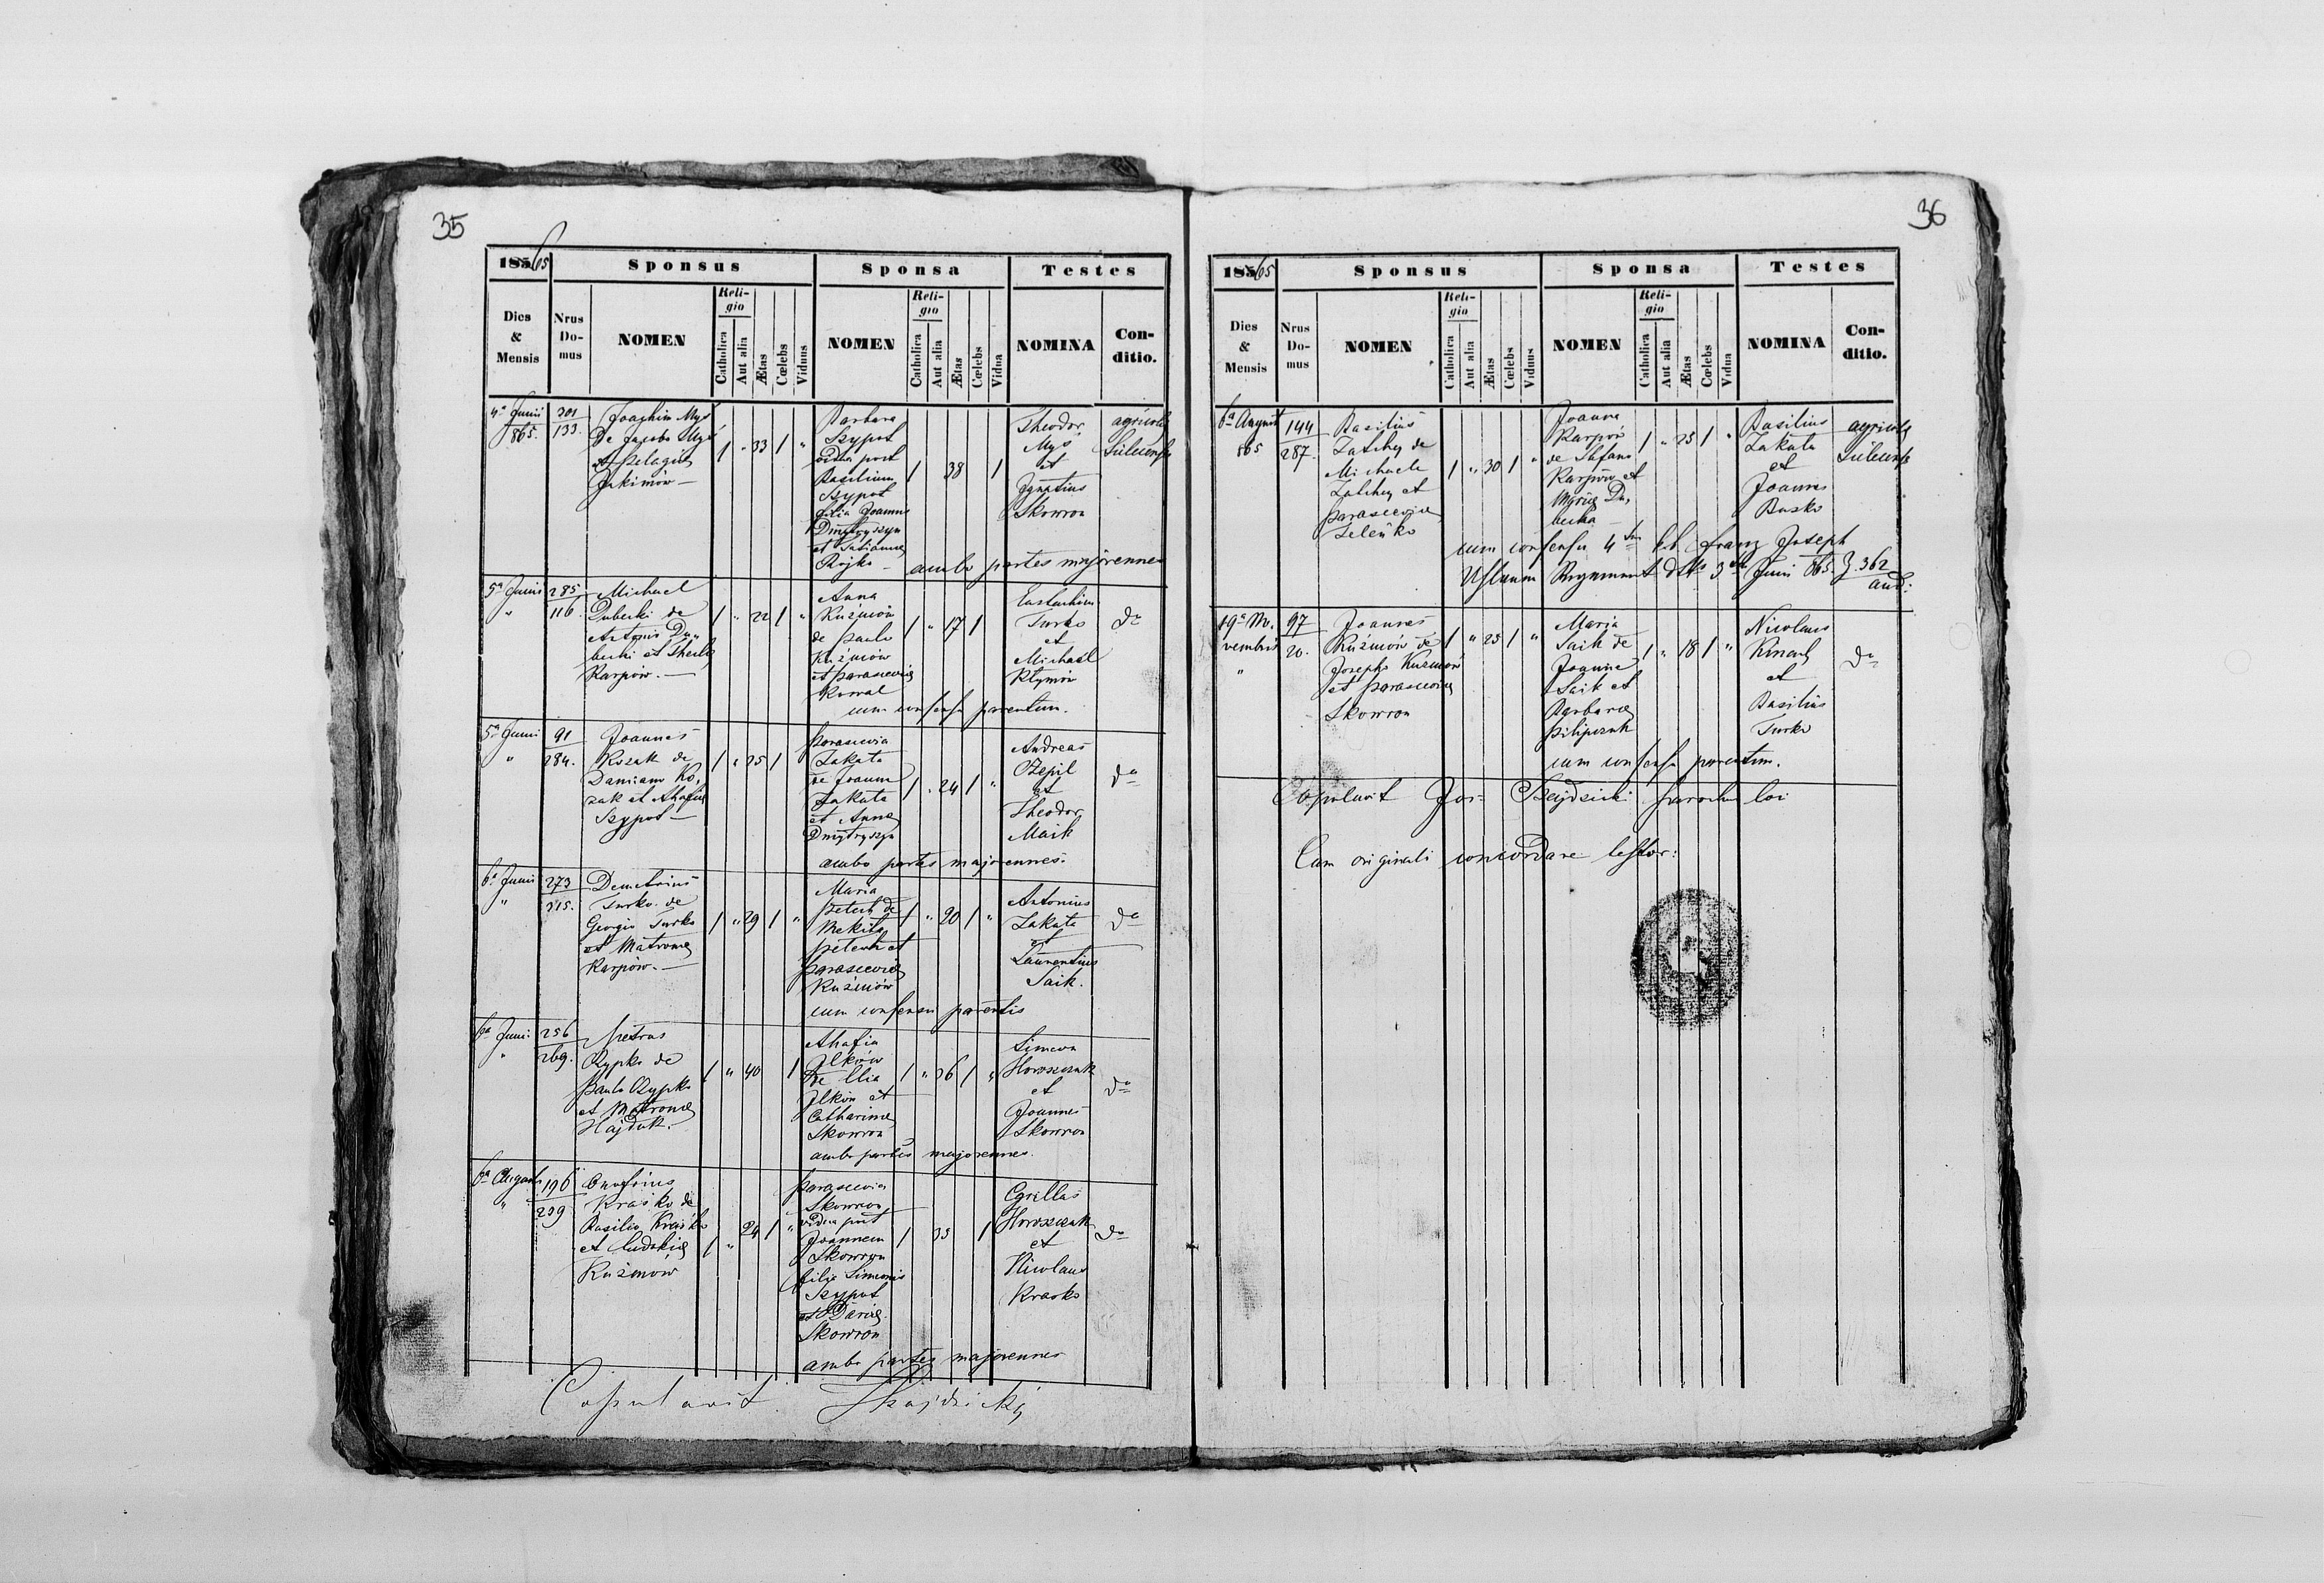 35
1865
Sponsus
Sponsa
Testes
Dies & Mensis
Nrus Domus
NOMEN
Religio
Catholica
Aut alia
Ætas
Cœlebs
Viduus
NOMEN
Religio
Catholica
Aut alia
Ætas
Cœlebs
Vidua
NOMINA
Conditio.
4a Junii 865.
301
133.
Joachim Myś
De Jacobo Myś
et Pelagia
Jakimów —
1 " 33 1 "
Barbara
Szypot
vidua post
Basilium
Szypot
filia Joannis
Dmytryszyn
et Tatianna
Rojko —
1 38 1
Theodor
Myś
et
Ignatius
Skowron
agricola
ambo partes majorennes
5a Junii "
285
116.
Michael
Dubecki de
Antonio Du-
becki et Thecla
Karpów. —
1 " 22 1 "
Anna
Kuźmów
de Paulo
Kuźmów
et Parascevia
Kowal
1 " 17 1
Eustachius
Turko
et
Michael
Klymów
do
cum consensu parentum.
5a Junii "
91
284.
Joannes
Kozak de
Damiano Ko-
zak et Ahafia
Szypot —
1 " 25 1
Parascevia
Zakata
de Joanne
Zakata
et Anna
Dmytryszyn
1 " 24 1 "
Andreas
et
Theodor
Maik
do
ambo partes majorennes.
6a Junii "
273
315.
Demetrius
Turko de
Georgio Turko
et Matrona
Karpów. —
1 " 29 1 "
Maria
Petech de
Mekita
Petech et
Parascevia
Kuźmów
1 " 20 1 "
Antonius
Zakata
et
Laurentius
Saik.
do
cum consensu parentis
6a Junii "
256
269.
Petrus
de
Paulo
et Matrona
Hajduk.
1 " 40 1
Ahafia
Ilków
De Elia
Ilków et
Catharina
Skowron
1 " 36 1 "
Simeon
Horoszczuk
et
Joannes
Skowron
do
ambo partes majorennes.
6a Augusti "
196
239
Onufrius
Kraśko de
Basilio Kraśko
et Eudokia
Kuźmów
1 " 24 1 "
Parascevia
Skowron
vidua post
Joannem
Skowron
filia Simeonis
Szypot
et Daria
Skowron
1 33 1
Cyrillus
Horoszczuk
et
Nicolaus
Krasko
do
ambo partes majorennes
Copulavit
36
1865
Sponsus
Sponsa
Testes
Dies & Mensis
Nrus Domus
NOMEN
Religio
Catholica
Aut alia
Ætas
Cœlebs
Viduus
NOMEN
Religio
Catholica
Aut alia
Ætas
Cœlebs
Vidua
NOMINA
Conditio.
6a August 865
144
287.
Basilius
de
Michaele
et
Parascevia
Zeleńko
1 " 30 1 "
Joanna
Karpów
de Stefano
Karpów et
Maria Du-
becka —
1 " 23 1 "
Basilius
Zakata
et
Joannes
Busko
agricola
cum consensu 4ten k.k. Franz Joseph
Uhlanen Regiment dtto 3ten Juni 865. Z. 362
19a Novembris "
97
20.
Joannes
Kuźmów de
Josepho Kuzmów
et Parascevia
Skowron
1 " 23 1 "
Maria
Saik de
Joanne
Saik et
Barbara
Pilipczuk
1 " 18 1 "
Nicolaus
et
Basilius
Turko
do
cum consensu parentum.
Copulavit Jos= parochus loci
Cum originali concordare testor: